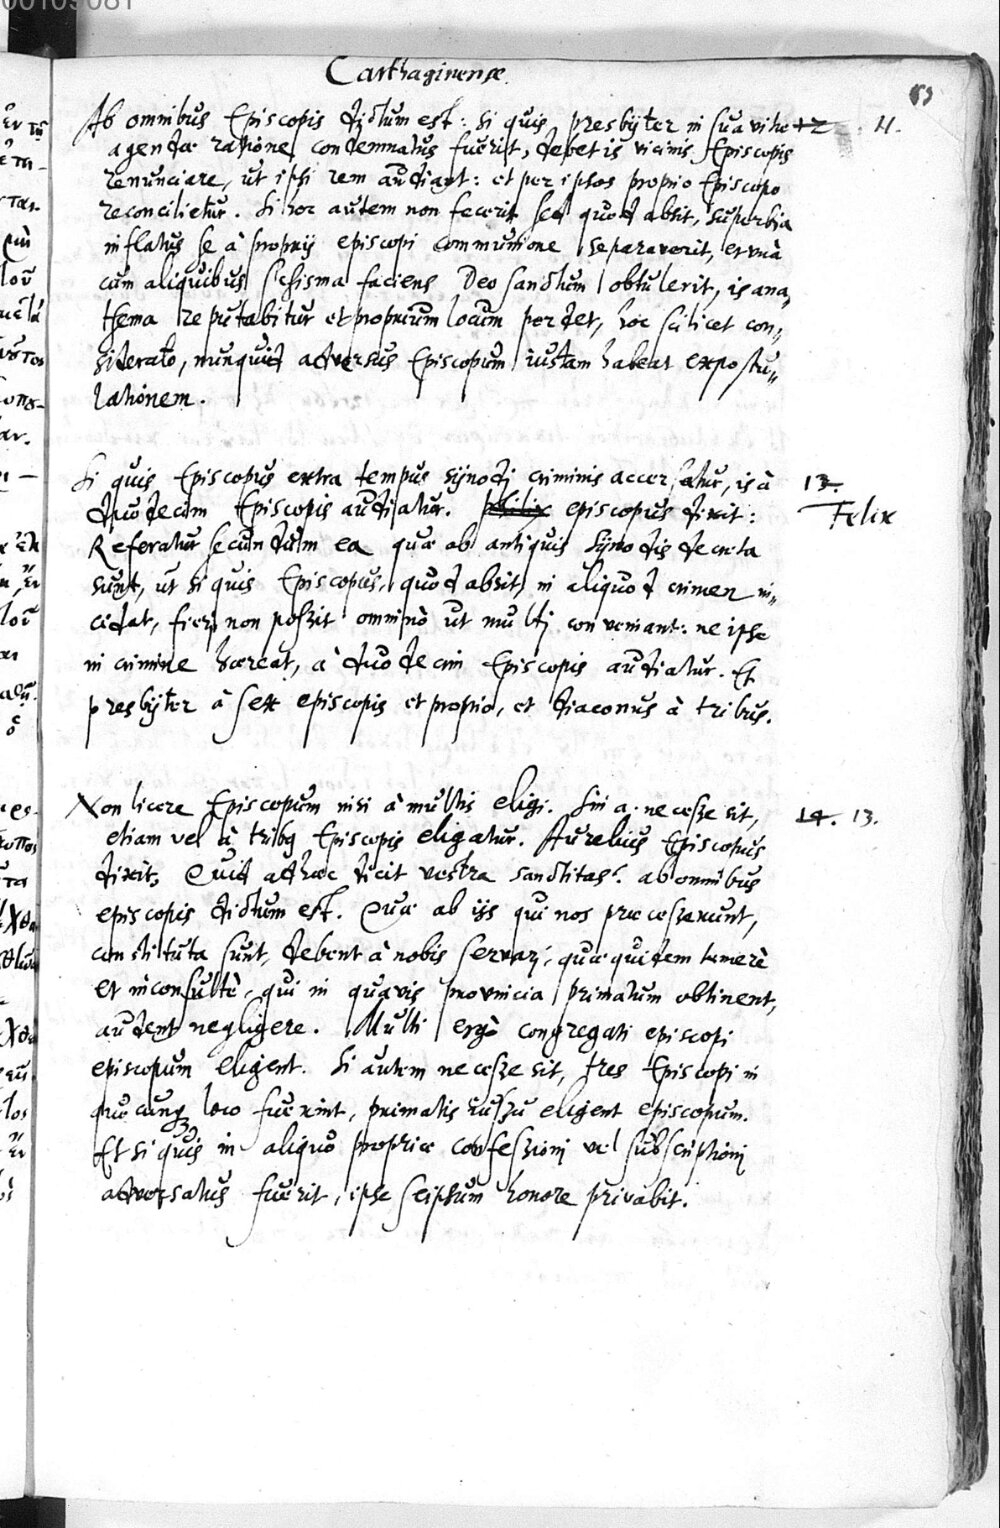 Carthaginense
83
Ab omnibus Episcopis dictum est: si quis presbyter in sua vitae 12. 11.
agendae ratione condemnatus fuerit, debet is vicinis Episcopis
renunciare, ut ipsi rem audiant: et per ipsos proprio Episcopo
reconcilietur. Si hoc autem non fecerit sed quod absit, superbia
inflatus se à proprij episcopi communione separaverit, et unà
cum aliquibus schisma faciens Deo sanctum obtulerit, is ana„
thema reputabitur et proprium locum perdet, hoc scilicet con„
siderato, nunquid adversus Episcopum iustam habeat expostu„
lationem.
Si quis Episcopus extra tempus synodj criminis accersatur, is à 13.
duodecim Episcopis audiatur. philix episcopus dixit: Felix
Referatur secundum ea quae ab antiquis synodis decreta
sunt, ut si quis Episcopus, quod absit, in aliquod crimen in„
cidat, fierj non possit omninò ut multj conveniant: ne ipse
in crimine haereat, à duodecim Episcopis audiatur. Et
presbyter à sex episcopis et proprio, et diaconus à tribus.
Non licere Episcopum nisi à multis eligi. Sin a. necesse sit, 14. 13.
etiam vel à tribq Episcopis eligatur. Aurelius Episcopus
dixit, Quid ad haec dicit vestra sanctitas? ab omnibus
episcopis dictum est. Quae ab ijs qui nos praecesserunt,
constituta sunt, debent à nobis servarj, quae quidem temerè
et inconsultè, qui in quavis provincia primatum obtinent,
audent negligere. Multi ergò congregati episcopi
episcopum eligent. Si autem necesse sit, tres Episcopi in
quocunq loco fuerint, primatis iussu eligent episcopum.
Et si quis in aliquo propriae confessionj vel subscriptionj
adversatus fuerit, ipse seipsum honore privabit.